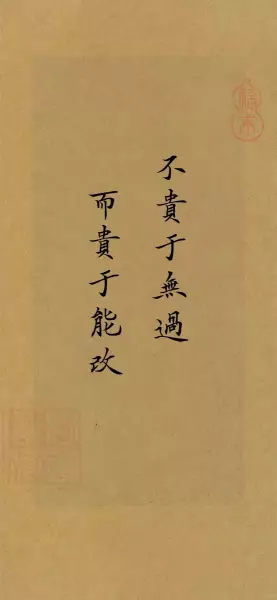 不貴于無過
而貴于能改